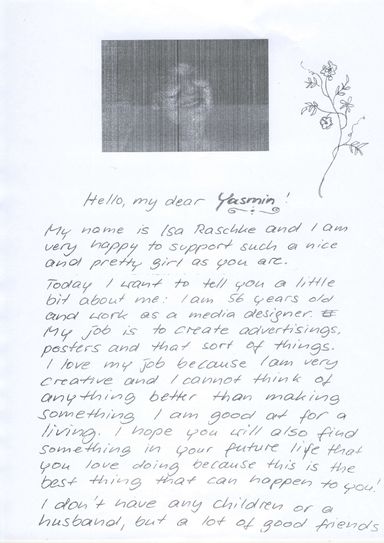 Hello, my dear Yasmin!
My name is Isa Raschke and I am
very happy to support such a nice
and pretty girl as you are.
Today I want to tell you a little
bit about me: I am 56 years old
and work as a media designer.
My job is to create advertisings,
posters and that sort of things.
I love my job because I am very
creative and I cannot think of
anything better than making
something I am good at for a
living. I hope you will also find
something in your future life that
you love doing because this is the
best thing that can happen to you!
I don't have any children or a
husband, but a lot of good friends